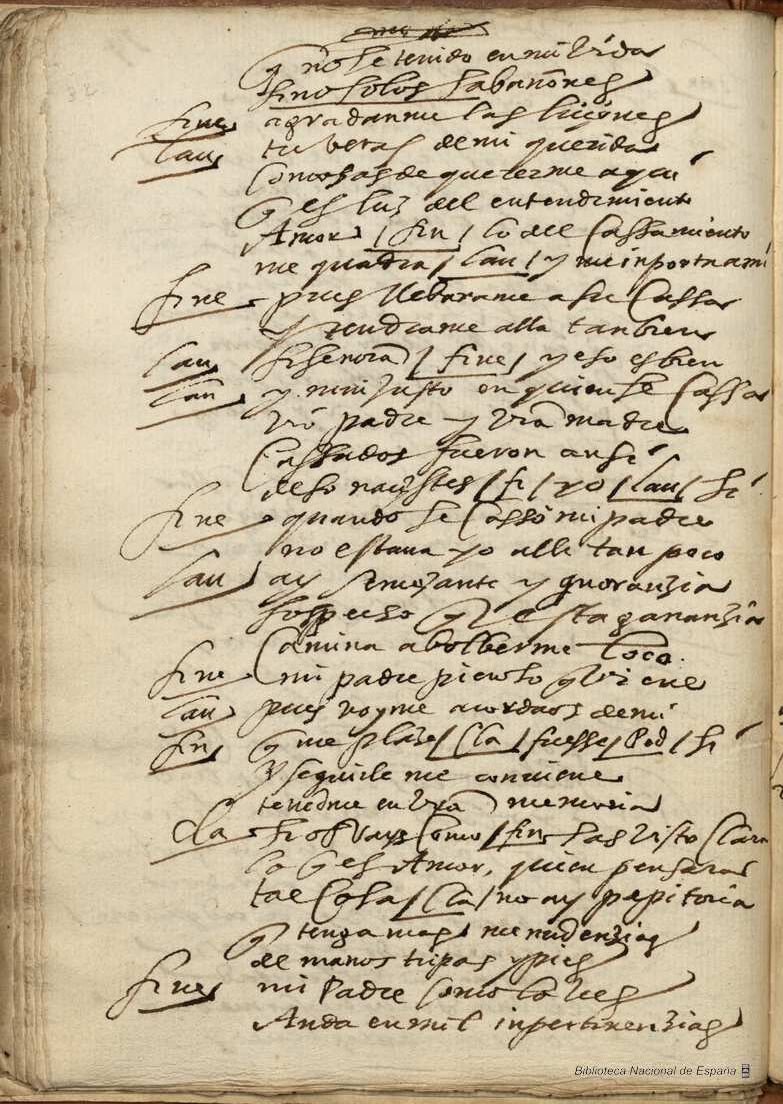 q no he tenido en mi vida
sino solos sabañones
fine agradanme las liçiones
lau tu veras de mi querida
Como has de quererme aqui
q es luz del entendimiento
Amor / fin / lo del Cassamiento
me quadra / lau / y me inporta a mi
fine pues llebarame a su Cassa
y tendrame alla tanbien
lau si señora / fine / y eso es bien
lau y muy justo en quien se Cassa
vro padre y vra madre
Cassados fueron ansi
deso naçistes / fi / yo / lau / si
fine quando se Cassó mi padre
no estaua yo alli tan poco
lau ay semejante ygnoranzia
sospecho q esta gananzia
Camina a bolberme loco
fine mi padre pienso q viene
lau pues voyme acordaos de mi
fin q me plaze / Cla / fuesse / Ped / si
y seguirle me conuiene
tenedme en vra memoria
cla sios vays Como / fin / has visto Clara
lo q es Amor, quien pensara
tal Cosa / Cla / no ay pepitoria
q tenga mas menudenzias
de manos tripas y pies
fine mi Padre Como lo ves
Anda en mil inpertinenzias
Biblioteca Nacional de España